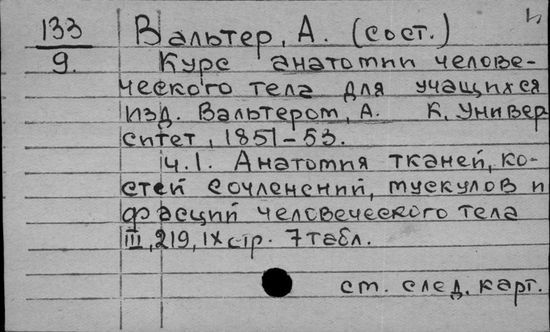 133
9.
Вальтер, А. (сост.)
Курс анатомии челове-
ческого тела для учащихся
изд. Вальтером, А. К. Универ
ситет, 1851-53.
ч.1. Анатомия тканей, ко-
стей сочленений, мускулов и
фасций человеческого тела
III, 219, IX стр. 7 табл.
ст. след. карт.